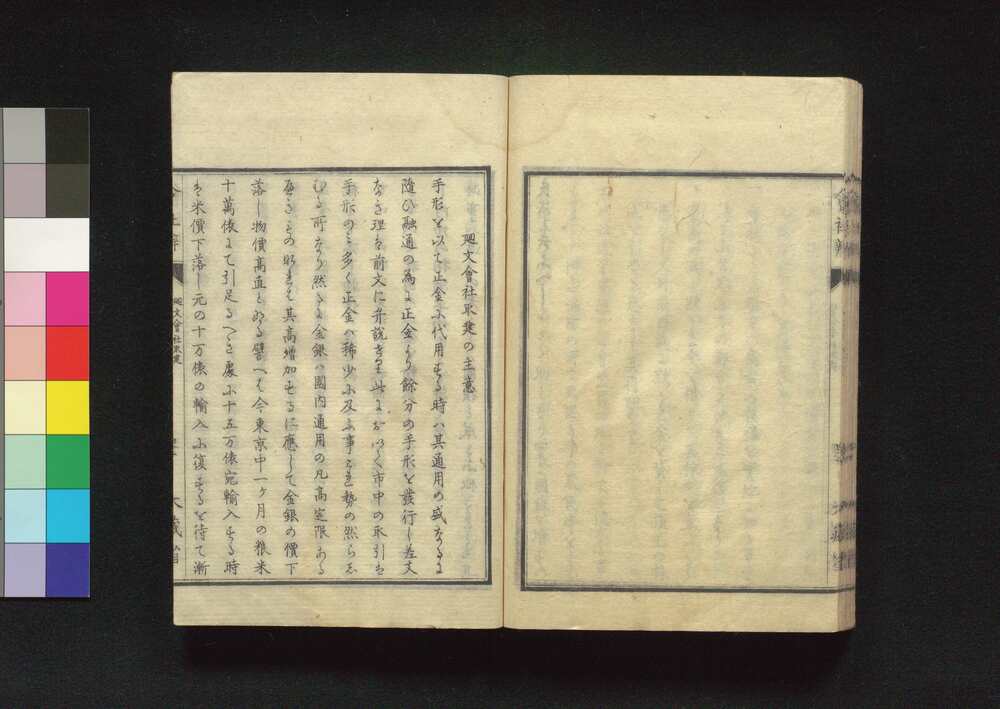 會社辨
廻文會社取建の主意
手形を以て正金に代用する時ハ其通用の盛なるに
随ひ融通の為に正金より餘分の手形を發行し差支
なき理ハ前文に弁説せり此におゐて市中の取引ハ
手形のミ多く正金ハ稀少に及ふ事ミな勢の然らし
むる所なり然るに金銀ハ國内通用の凡高定限ある
其高増加するに應して金銀の價下
落し物價高直と成る譬へハ今東京中一ヶ月の粮米
十萬俵にて引足るへき處に十五万俵宛輸入する時
ハ米價下落し元の十万俵の輸入に復するを待て漸
廻文會社取建
大藏省